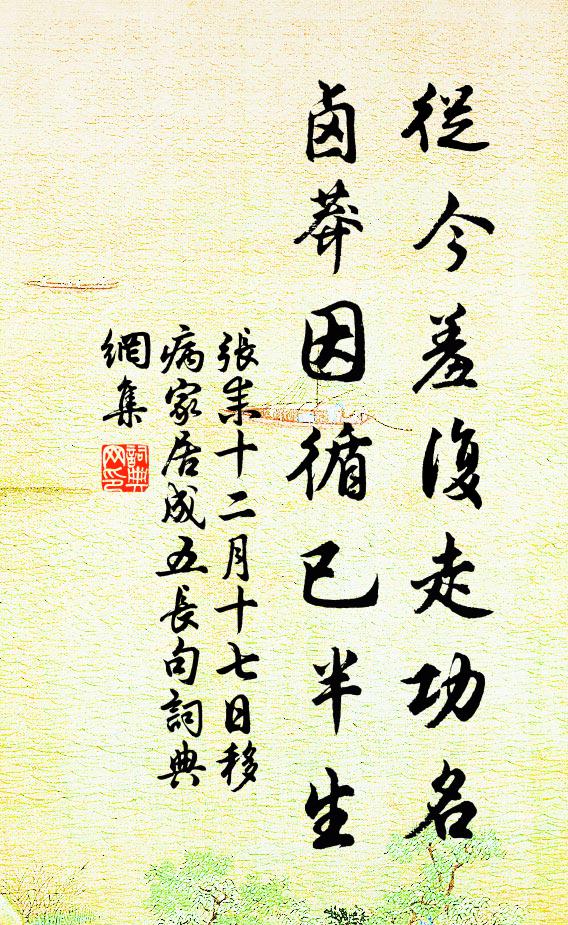 從今羞復走功名
鹵莽因循已半生
張耒十二月十七日移
病家居成五長句詞典
網集
詞典
网印